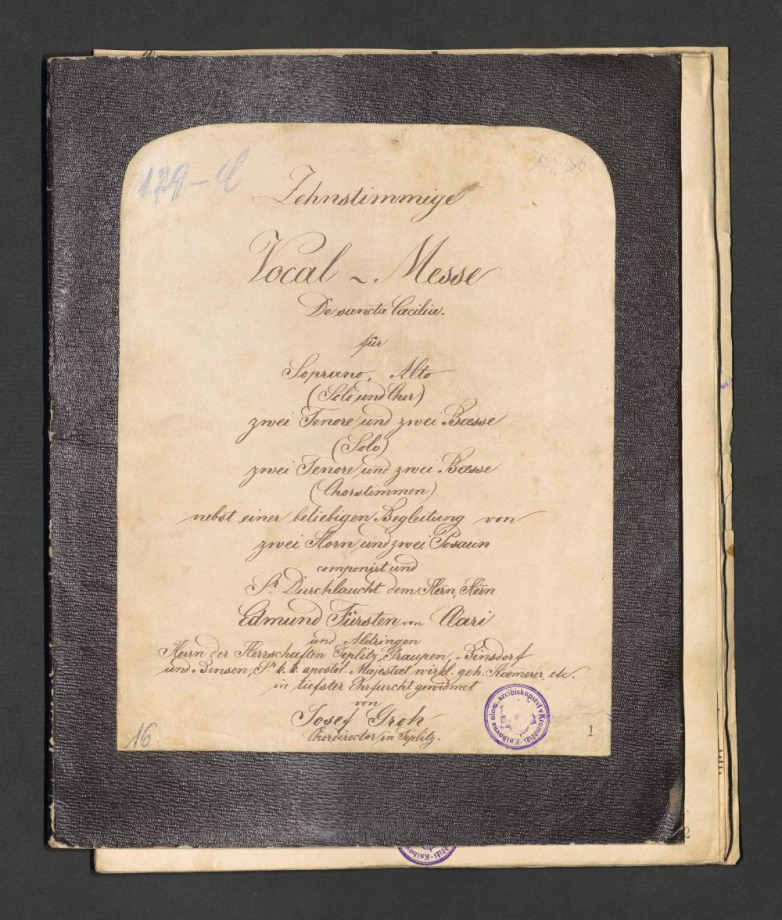 179-C
Zehnstimmige
Vocal ~ Messe
De sancta Cæcilia.
für
Soprano, Alto
(Solo und Chor)
zwei Tenore und zwei Bæsse
(Solo)
zwei Tenore und zwei Bæsse
(Chorstimmen)
nebst einer beliebigen Begleitung von
zwei Horn und zwei Posaun
componirt und
Sr Durchlaucht dem Herrn, Herrn
Edmund Fürsten von Clari
und Aldringen
Herrn der Herrschæften Teplitz, Graupen, Binsdorf
und Bensen, Sr k. k. apostol. Majestæt wirkl. geh. Kæmerer, etc.
in tiefster Ehrfurcht gewidmet
von
Josef Groh
Chordirector in Teplitz.
Knihovna olom. arcibiskupství v Kroměříži
16
1
2